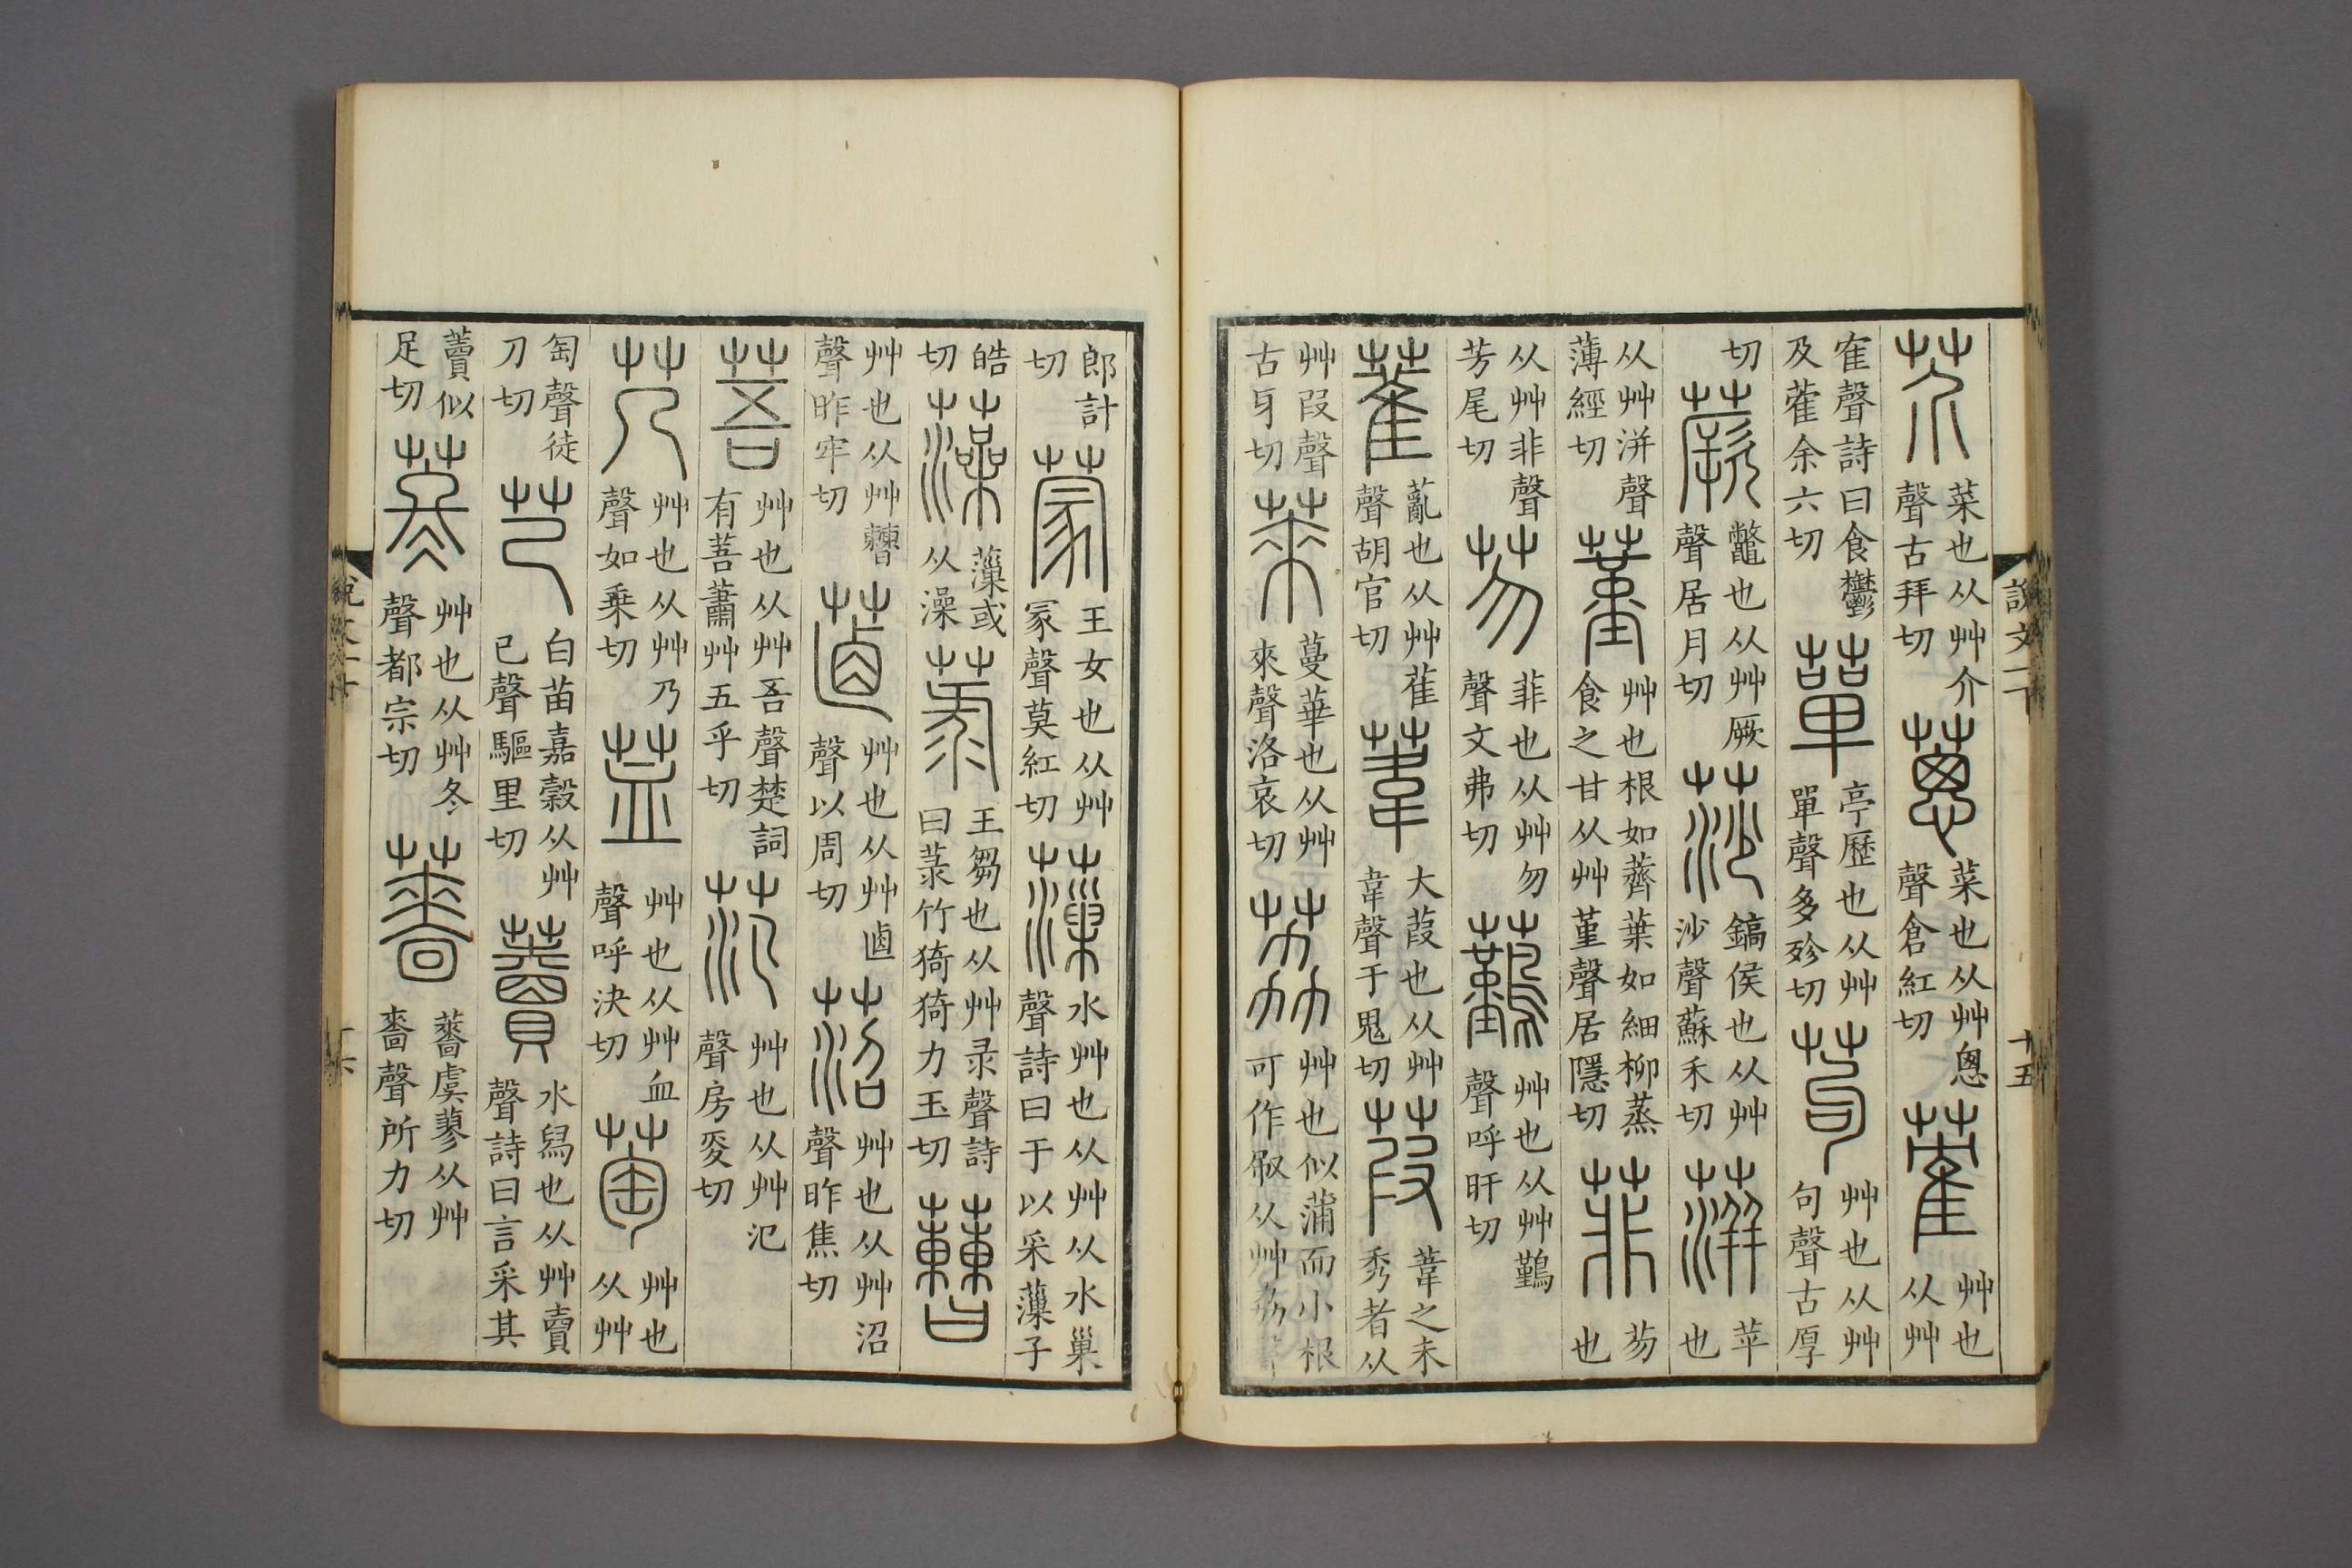 說文一下 十五
芥菜也从艸介聲古拜切蔥菜也从艸悤聲倉紅切蒮艸也从艸
隺聲詩曰食鬱及蒮余六切蕇亭歷也从艸單聲多殄切苟艸也从艸句聲古厚
切蕨鼈也从艸厥聲居月切莎鎬侯也从艸沙聲蘇禾切蓱苹也
从艸洴聲薄經切堇艸也根如薺葉如細柳蒸食之甘从艸堇聲居隱切菲芴也
从艸非聲芳尾切芴菲也从艸勿聲文弗切䕼艸也从艸𪄿聲呼旰切
萑薍也从艸萑聲胡官切葦大葭也从艸韋聲于鬼切葭葦之未秀者从
艸叚聲古牙切萊蔓華也从艸來聲洛哀切荔艸也似蒲而小根可作㕞从艸劦聲
郎計切蒙王女也从艸冡聲莫紅切薻水艸也从艸从水巢聲詩曰于以采薻子
皓切藻薻或从澡菉王芻也从艸录聲詩曰菉竹猗猗力玉切蓸
艸也从艸聲昨牢切艸也从艸卣聲以周切菬艸也从艸沼聲昨焦切
䓊艸也从艸吾聲楚詞有䓊蕭艸五乎切范艸也从艸氾聲房㚇切
艿艸也从艸乃聲如乗切艸也从艸血聲呼決切萄艸也从艸
匋聲徒刀切芑白苗嘉穀从艸己聲驅里切藚水舄也从艸賣聲詩曰言采其
藚似足切苳艸也从艸冬聲都宗切薔薔虞蓼从艸嗇聲所力切
說文一下 十六